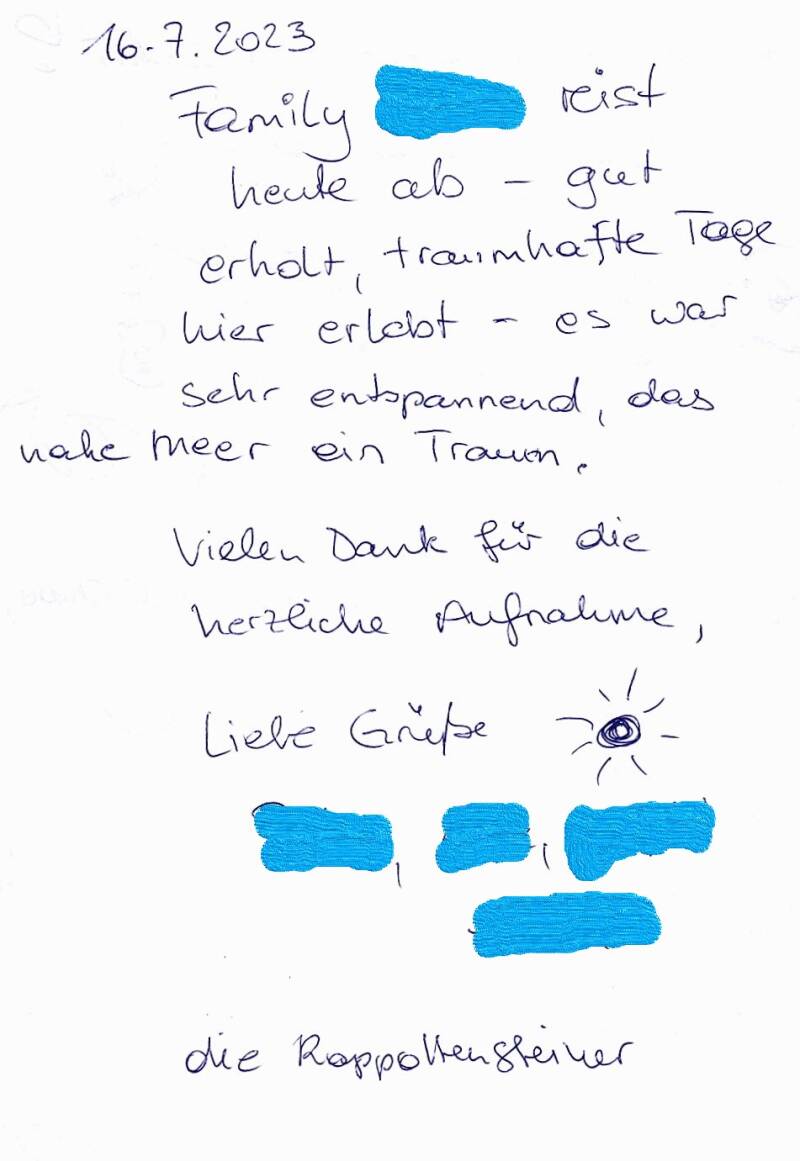 16.7.2023
Family reist
heute ab – gut
erholt, traumhafte Tage
hier erlebt – es war
sehr entspannend, das
nahe Meer ein Traum.
Vielen Dank für die
herzliche Aufnahme,
Liebe Grüße
, ,
die Rappottensteiner